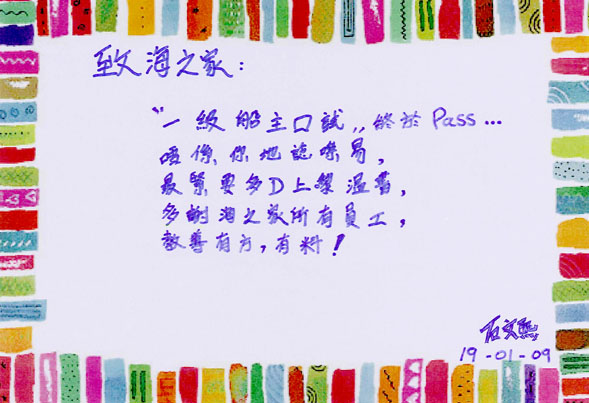 致海之家:
"一級船主口試,, 終於 Pass...
唔係你地諗易,
最緊要多D上黎溫書,
多謝海之家所有員工,
教善有方,有料!
石文
19-01-09